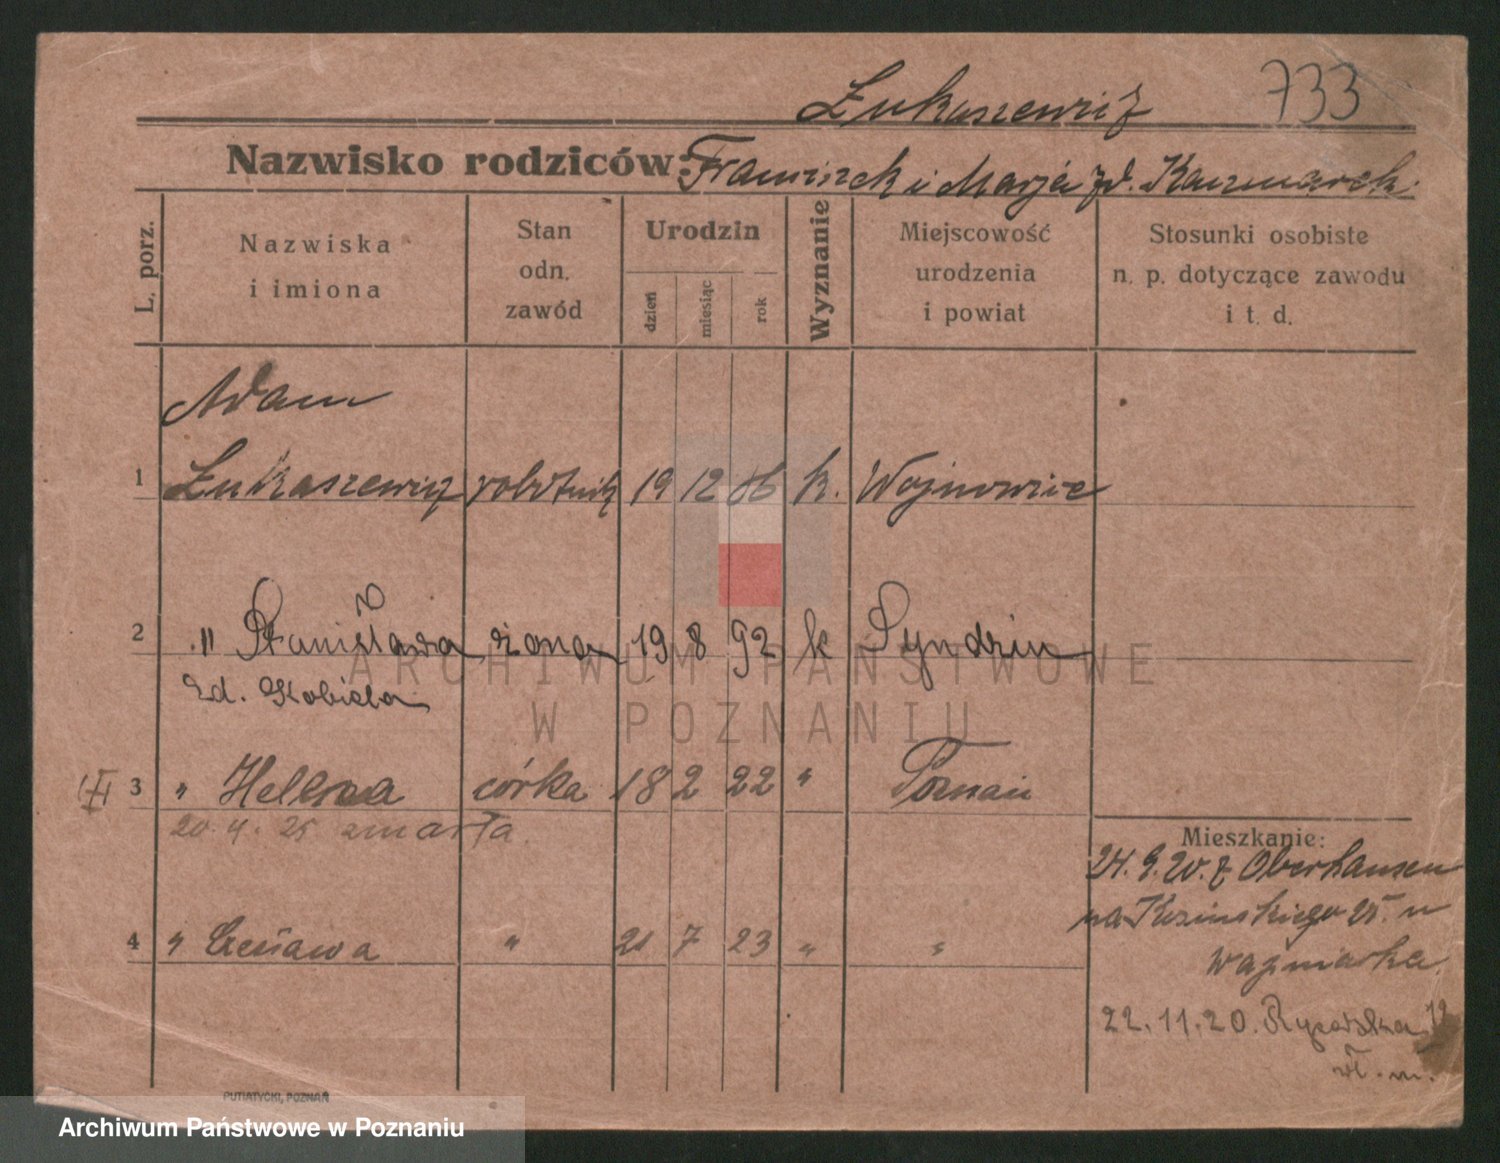 Łukaszewicz 733
Nazwisko rodziców: Franciszek i Marja zd. Kaczmarek.
L. porz.
Nazwiska
i imiona
Stan
odn.
zawód
Urodzin
dzień
miesiąc
rok
Wyznanie
Miejscowość
urodzenia
i powiat
Stosunki osobiste
n. p. dotyczące zawodu
i t. d.
Adam
1 Łukaszewicz robotnik 19 12 86 k. Wojnowice
2 " Stanisława żona 19 8 92 k
zd. Skobiela
3 " Helena córka 18 2 22 " Poznań
20.4.25 zmarła.
4 " Czesława " 21 7 23 " "
Mieszkanie:
24. 9. 20. z Oberhausen
na 25. u
22.11.20. Rycerska 12
wł. m.
ARCHIWUM PAŃSTWOWE
W POZNANIU
PUTIATYCKI, POZNAŃ
Archiwum Państwowe w Poznaniu